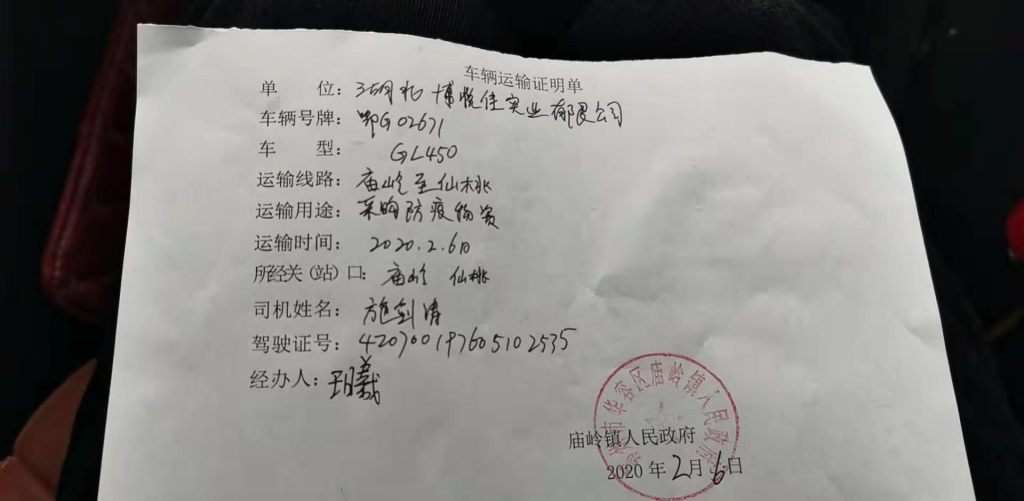 车辆运输证明单
单 位：湖北博悦佳实业有限公司
车辆号牌：鄂G02671
车 型：GL450
运输线路：庙岭至仙桃
运输用途：采购防疫物资
运输时间：2020.2.6日
所经关（站）口：庙岭 仙桃
司机姓名：施剑清
驾驶证号：420700197605102535
经办人：
华容区庙岭镇人民政府
庙岭镇人民政府
2020年2月6日